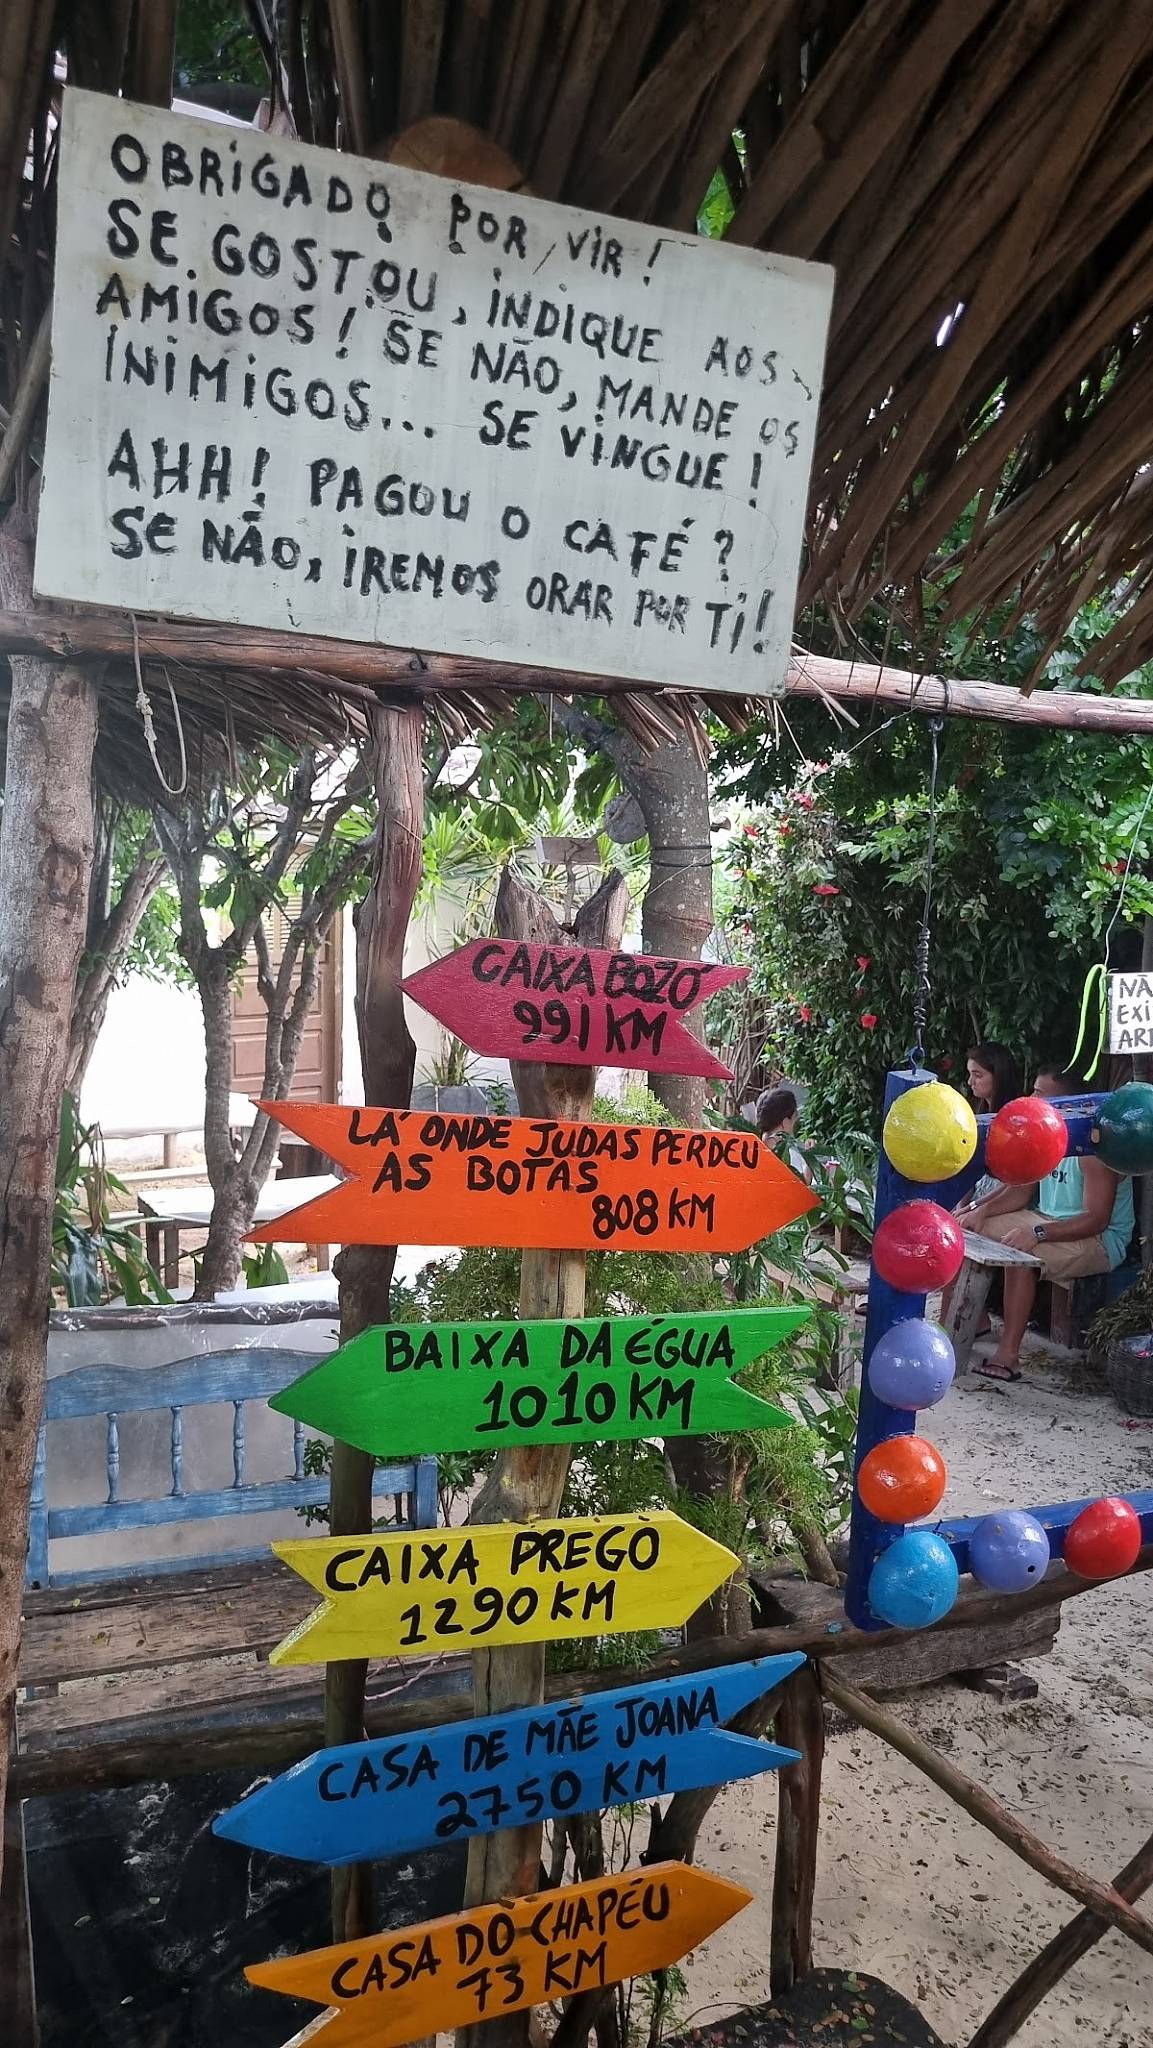 OBRIGADO POR VIR!
SE GOSTOU, INDIQUE AOS
AMIGOS! SE NÃO, MANDE OS
INIMIGOS... SE VINGUE!
AHH! PAGOU O CAFÉ?
SE NÃO, IREMOS ORAR POR TI!
CAIXA BOZÓ
991 KM
LÁ ONDE JUDAS PERDEU
AS BOTAS
808 KM
BAIXA DA ÉGUA
1010 KM
CAIXA PREGO
1290 KM
CASA DE MÃE JOANA
2750 KM
CASA DO CHAPÉU
73 KM